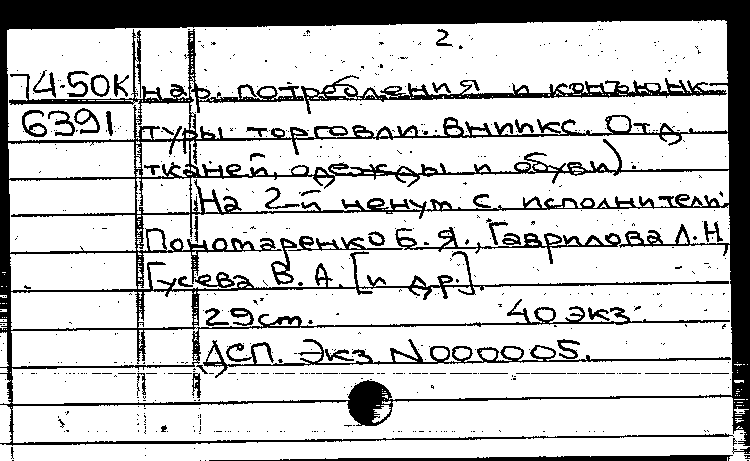 2.
74-50К нар. потребления и конъюнк-
6391 туры торговли. ВНИИКС. Отд.
тканей, одежды и обуви).
На 2-й ненум. с. исполнители:
Пономаренко Б. Я., Гаврилова Л. Н,
Гусева В. А. [и др.].
29 ст. 40 экз.
ДСП. Экз N000005.